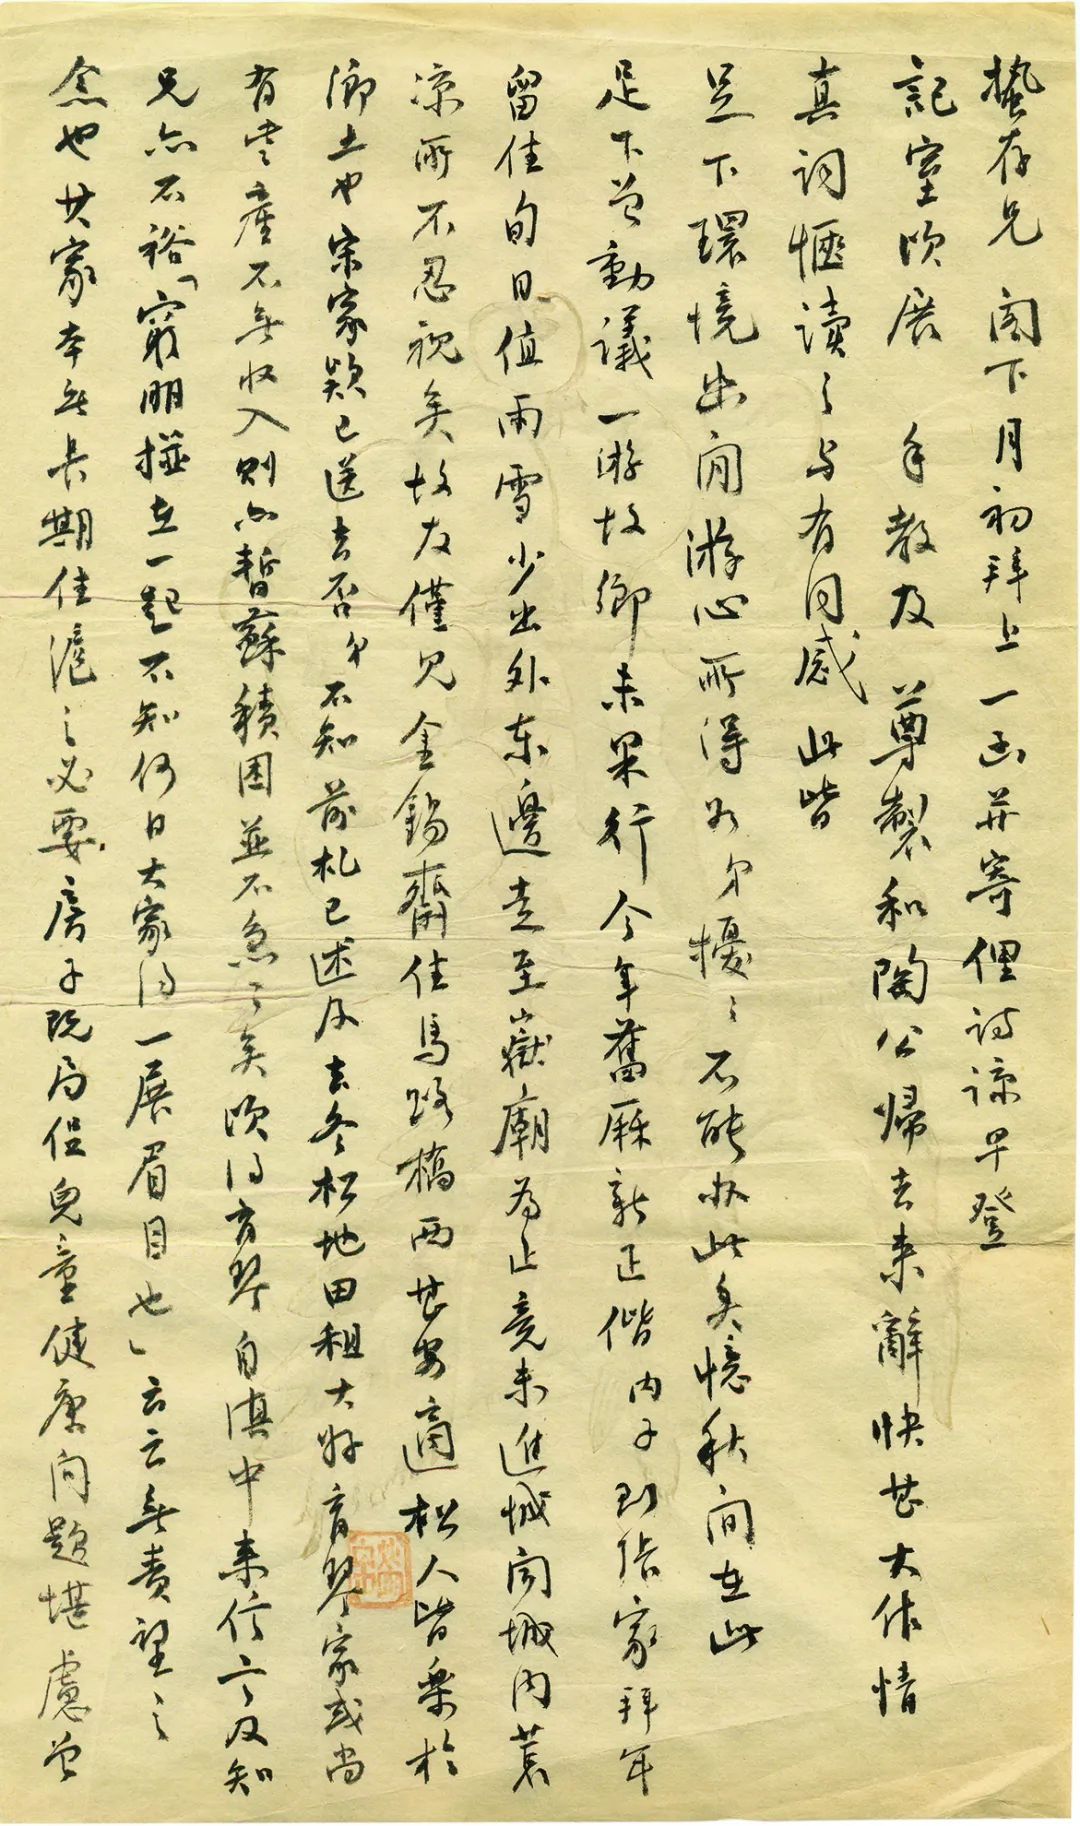 蟄存兄 閣下月初拜上一函并寄俚詩諒早登
記室頃展 手教及 尊製和陶公歸去來辭快甚大作情
真詞愜讀之与有同感此皆
足下環境出閒游心所得如弟擾之不能办此矣憶秋间在此
足下曾動議一游故鄉未果行今年舊厤新正偕内子到岳家拜年
留住旬日值雨雪少出外東邊走至嶽廟為止竟未進城闻城内荒
凉所不忍視矣故友僅見金錫齋住馬路橋西甚安適松人皆樂於
鄉土也宋家款已送去否弟不知前札已述及去冬松地田租大好育琴家或尚
有薄產不無收入则亦暫蘇積困並不急之矣頃得育琴自滇中来信亦及知
兄亦不裕「窮朋碰在一起不知何日大家得一展眉目也」云云無責望之
念也其家本無長期住滬之必要房子既局促兒童健康问題堪慮曾